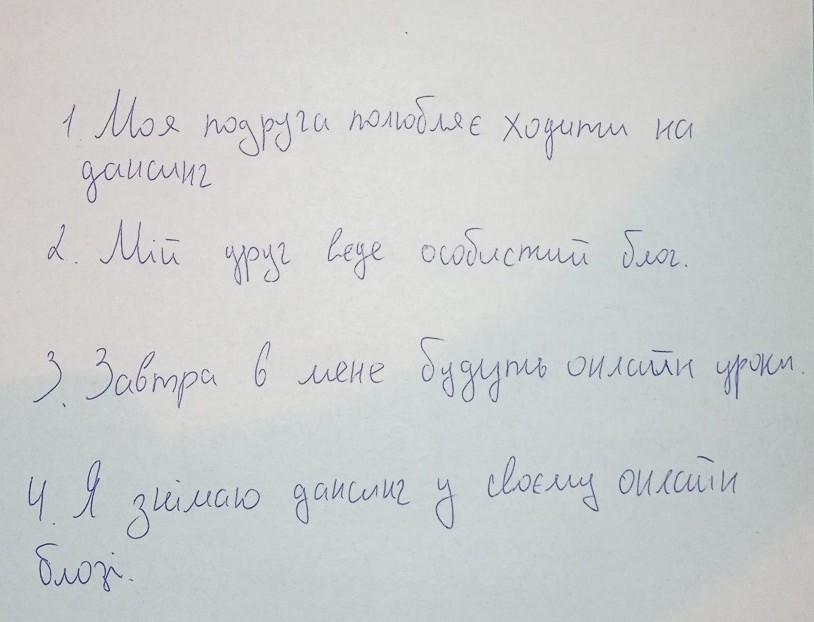 1. Моя подруга полюбляє ходити на
дансинг
2. Мій друг веде особистий блог.
3. Завтра в мене будуть онлайн уроки.
4. Я знімаю дансинг у своєму онлайн
блозі.